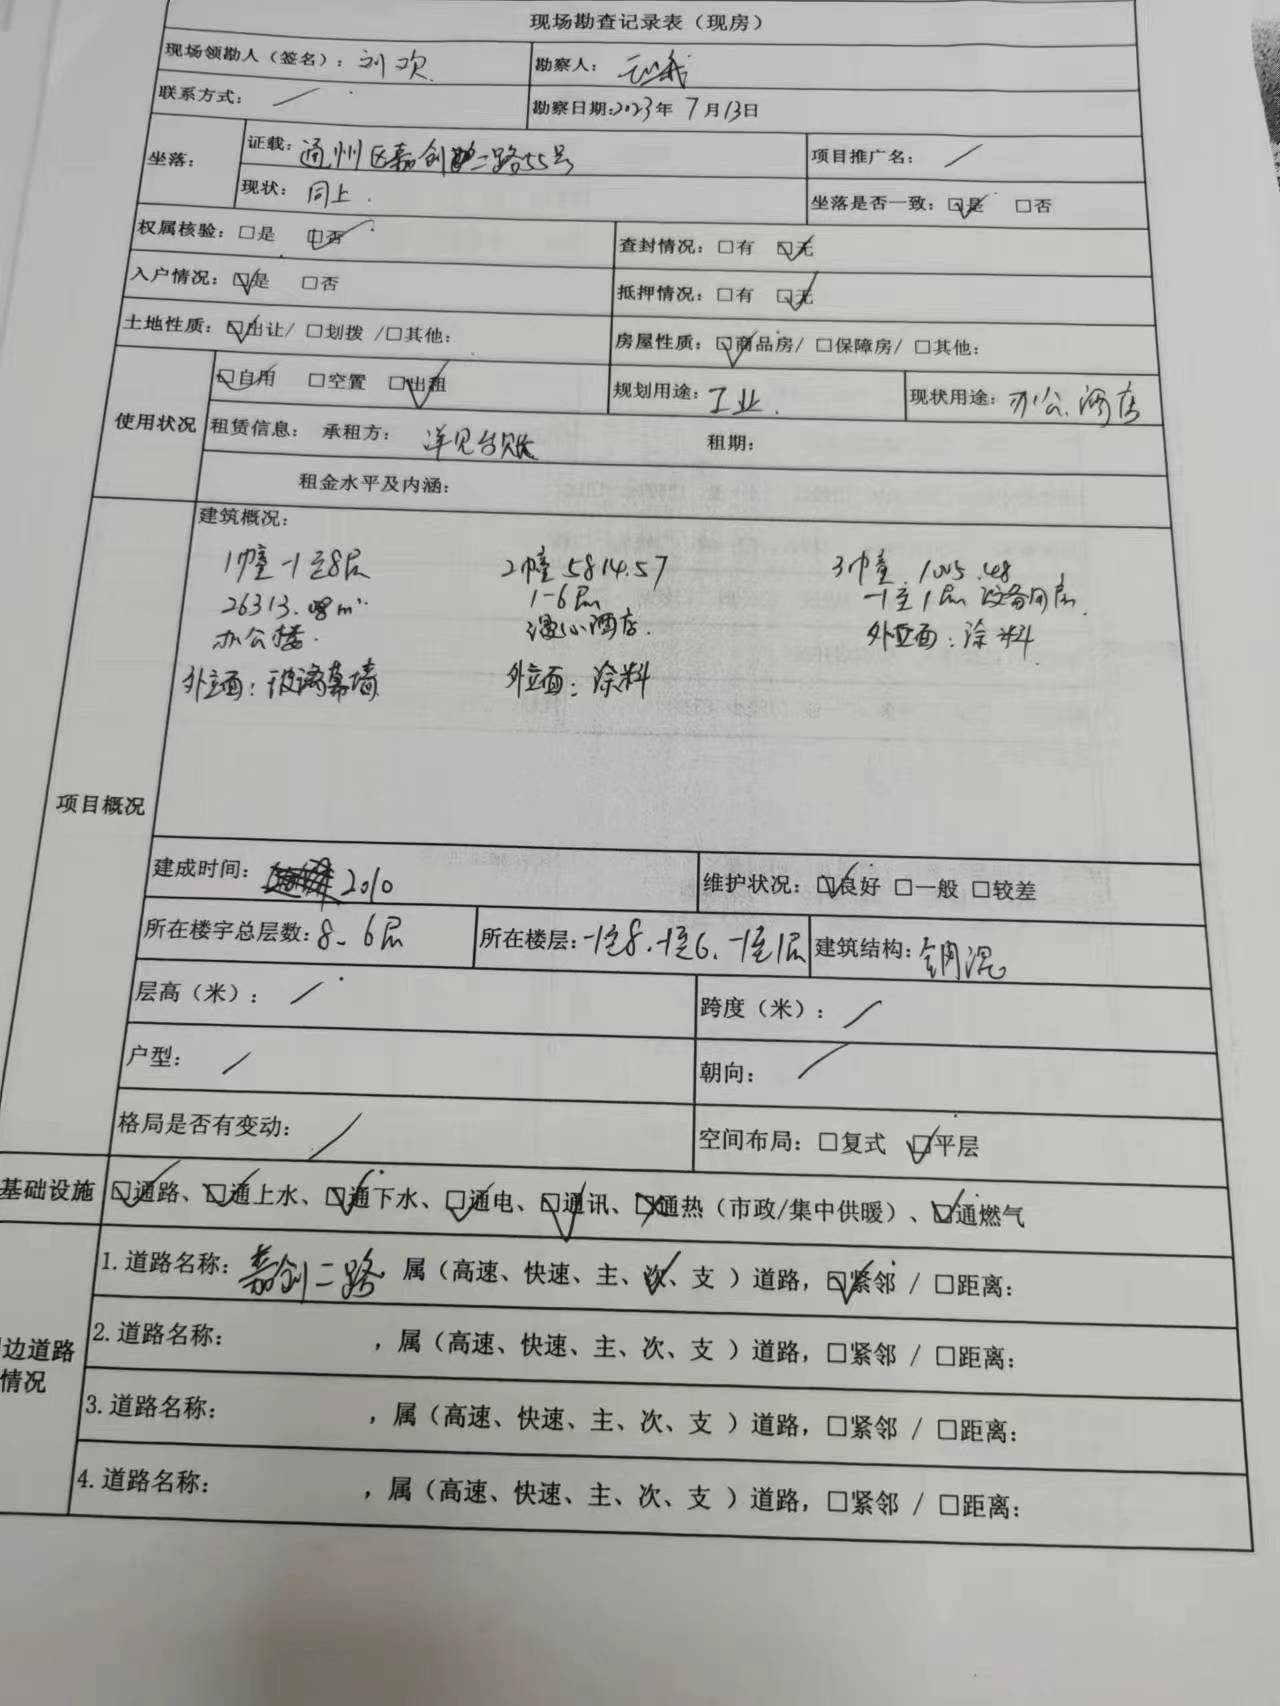 现场勘查记录表（现房）
现场领勘人（签名）：刘欢 勘察人：
联系方式： / 勘察日期:2023年 7月13日
坐落： 证载：通州区嘉创二路55号 项目推广名： /
现状：同上. 坐落是否一致：☑是 □否
权属核验：□是 ☑否 查封情况：□有 ☑无
入户情况：☑是 □否 抵押情况：□有 ☑无
土地性质：☑出让/ □划拨 /□其他： 房屋性质：☑商品房/ □保障房/ □其他：
使用状况 ☑自用 □空置 ☑出租 规划用途：工业. 现状用途：办公.酒店
租赁信息： 承租方： 详见台账 租期：
租金水平及内涵：
项目概况 建筑概况：
1幢-1至8层 2幢5814.57 3幢.1005.48
26313. m² 1-6层 -1至1层 设备用房.
办公楼. 酒店. 外立面：涂料.
外立面：玻璃幕墙 外立面：涂料
建成时间： 2010 维护状况：☑良好 □一般 □较差
所在楼宇总层数：8、6层 所在楼层：-1至8、-1至6、-1至1层 建筑结构：钢混
层高（米）： / 跨度（米）： /
户型： / 朝向： /
格局是否有变动： / 空间布局：□复式 ☑平层
基础设施 ☑通路、☑通上水、☑通下水、☑通电、☑通讯、☒通热（市政/集中供暖）、☑通燃气
边道路情况 1.道路名称：嘉创二路 属（高速、快速、主、次、支 ）道路，☑紧邻 / □距离：
2.道路名称： ，属（高速、快速、主、次、支 ）道路，□紧邻 / □距离：
3.道路名称： ，属（高速、快速、主、次、支 ）道路，□紧邻 / □距离：
4.道路名称： ，属（高速、快速、主、次、支 ）道路，□紧邻 / □距离：